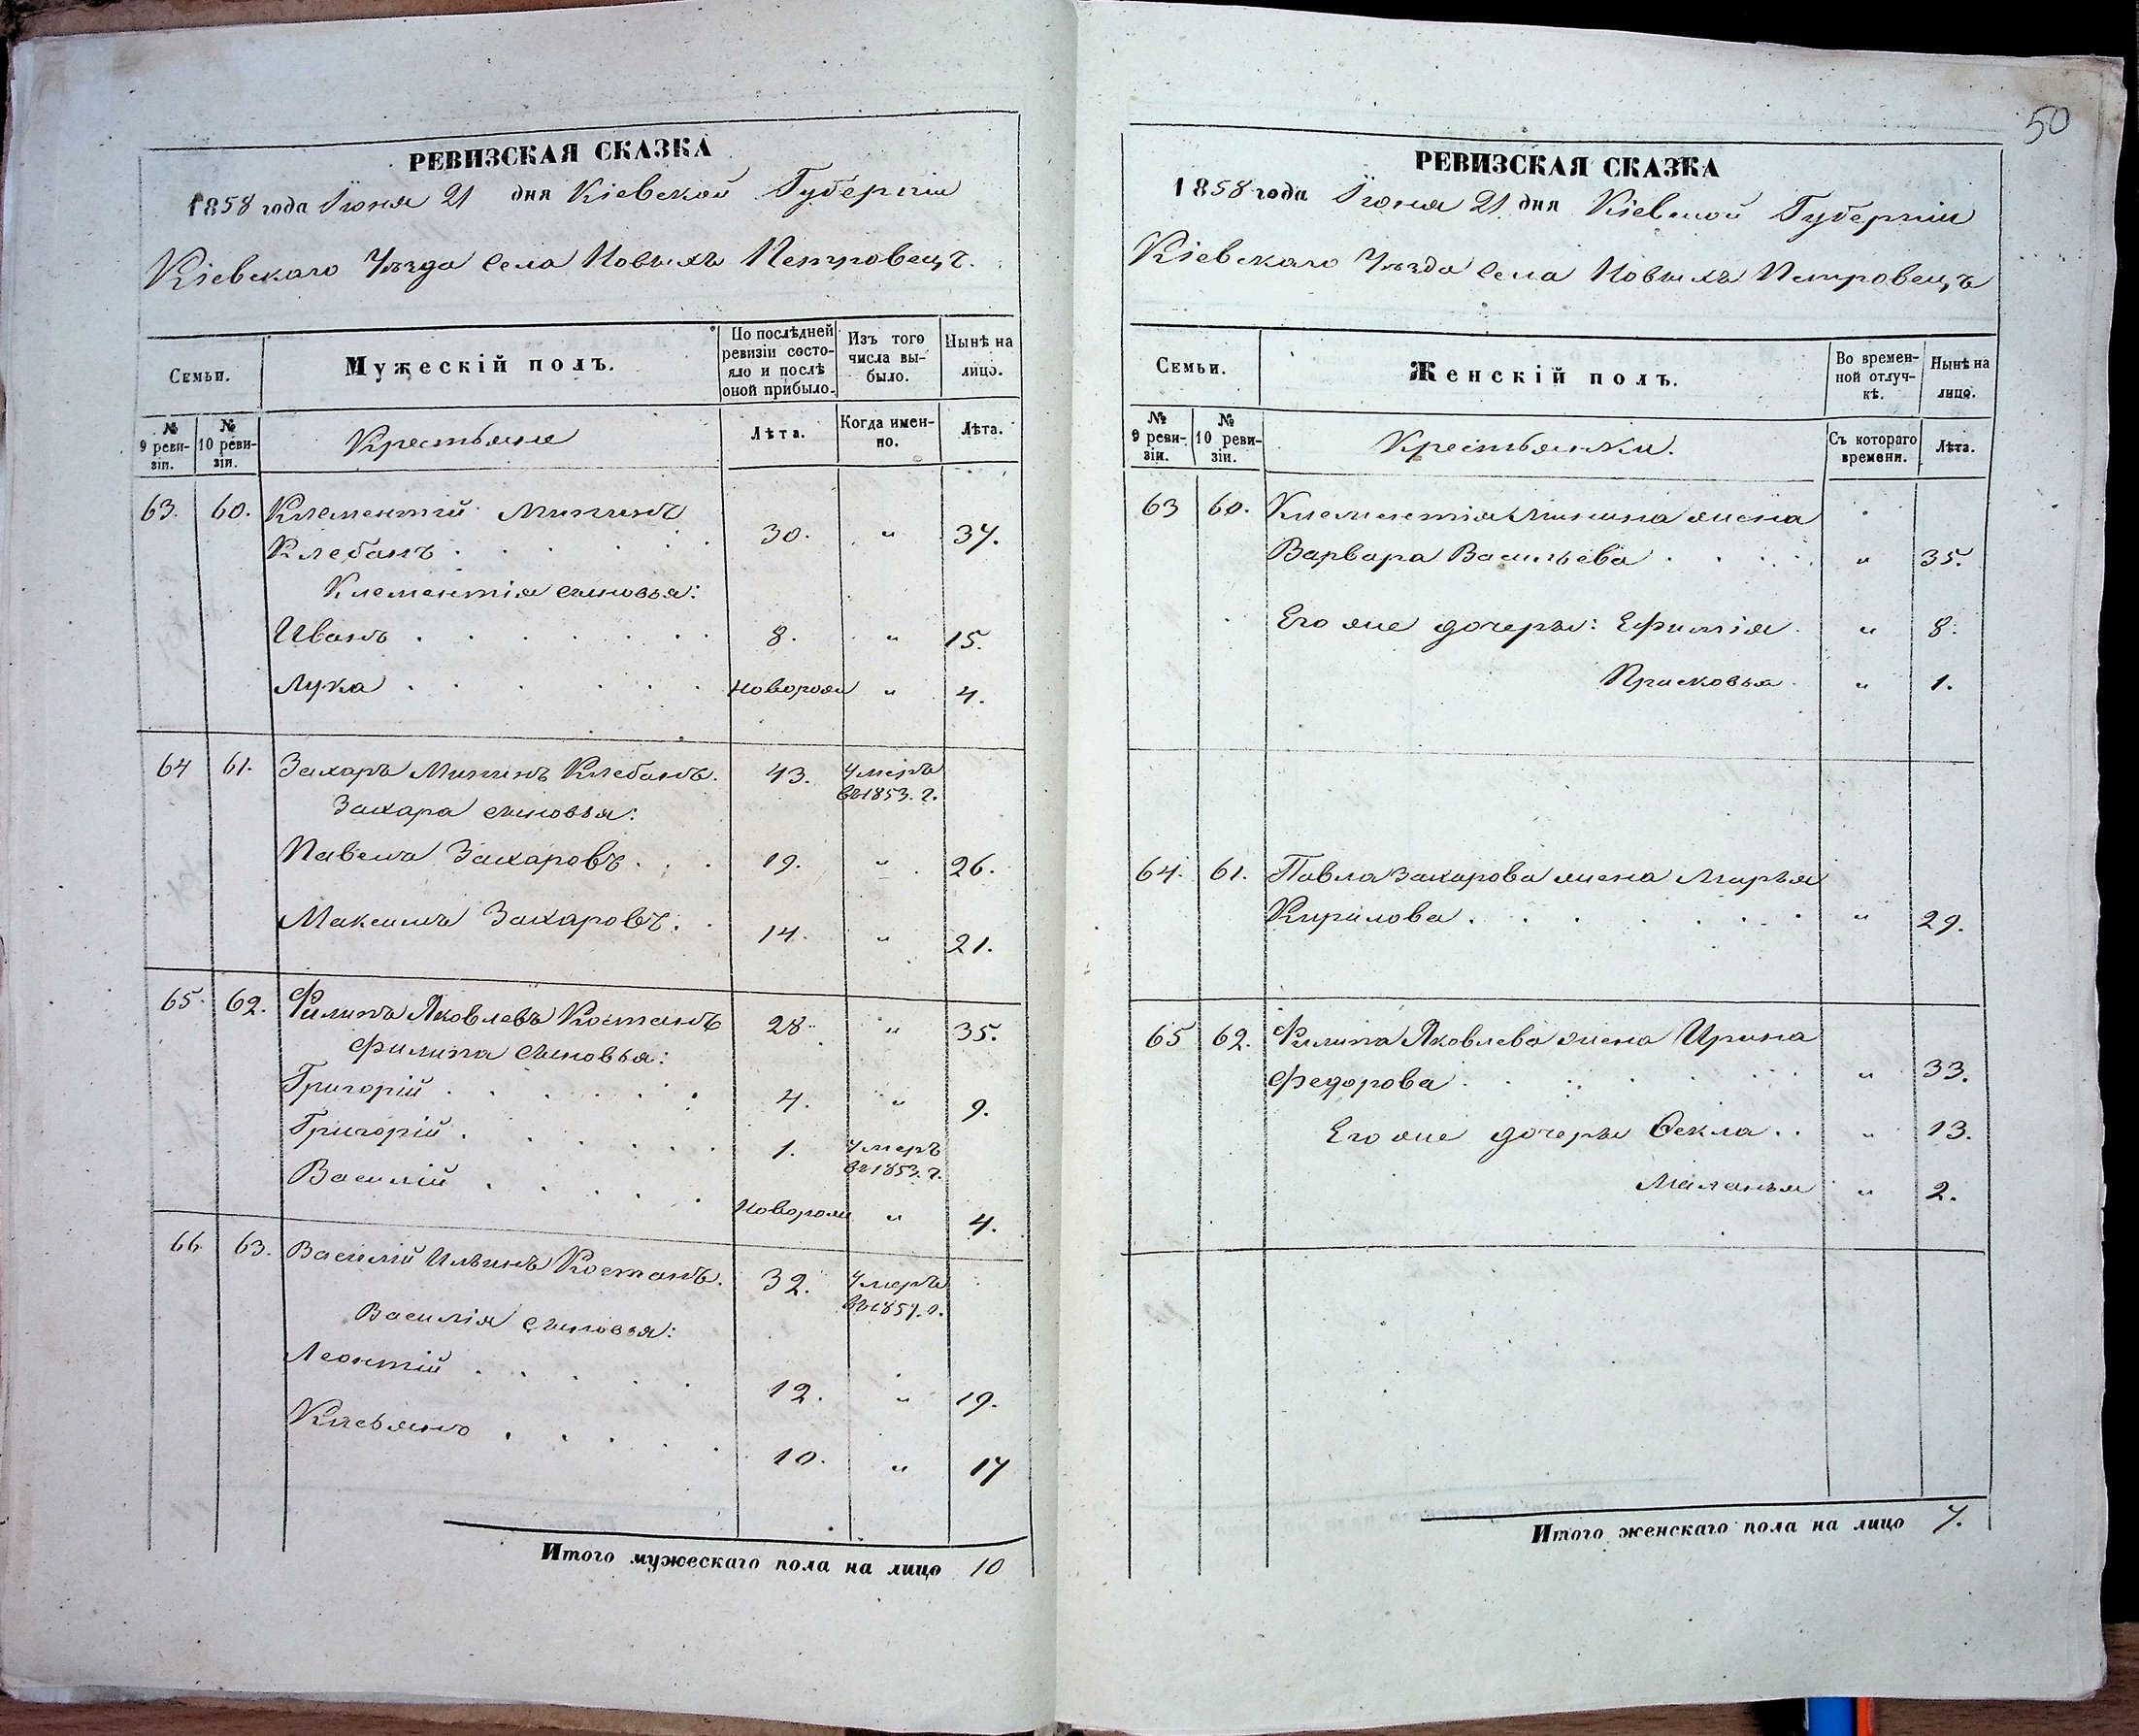 РЕВИЗСКАЯ СКАЗКА
1858 года Іюня 21 дня Кіевской Губерніи
Кіевскаго Уѣзда села Новыхъ Петровецъ.
Семьи.
Мужескій полъ.
По послѣдней ревизіи состояло и послѣ оной прибыло.
Изъ того числа выбыло.
Нынѣ на лицо.
№ 9 ревизіи.
№ 10 ревизіи.
Крестьяне
Лѣта.
Когда именно.
Лѣта.
63. 60. Клементій Мининъ
Клебанъ . . . . . . 30. " 37.
Клементія сыновья:
Иванъ . . . . . . . 8. " 15.
Лука . . . . . . . новорож " 4.
64 61. Захаръ Мининъ Клебанъ. 43. Умеръ
въ 1853. г.
Захара сыновья:
Павелъ Захаровъ . . . 19. " 26.
Максимъ Захаровъ. . 14. " 21.
65. 62. Филипъ Яковлевъ Костанъ 28. " 35.
Филипа сыновья:
Григорій . . . . . . 4. " 9.
Григорій . . . . . . 1. Умеръ
въ 1853. г.
Василій . . . . . Новорож " 4.
66. 63. Василій Ильинъ Костанъ. 32. Умеръ
въ 1857. г.
Василія сыновья:
Леонтій . . . . . 12. " 19.
Касьянъ . . . . . 10. " 17
Итого мужескаго пола на лицо 10
50
РЕВИЗСКАЯ СКАЗКА
1858 года Іюня 21 дня Кіевской Губерніи
Кіевскаго Уѣзда села Новыхъ Петровецъ
Семьи.
Женскій полъ.
Во временной отлучкѣ.
Нынѣ на лицо.
№ 9 ревизіи.
№ 10 ревизіи.
Крестьянки.
Съ котораго времени.
Лѣта.
63 60. Клементія Минина жена
Варвара Васильева . . . . " 35.
Его же дочери: Ефимія. " 8.
Присковья. " 1.
64. 61. Павла Захарова жена Марья
Кирилова . . . . . . . " 29.
65 62. Филипа Яковлева жена Ирина
Федорова . . . . . . " 33.
Его же дочери Ѳекла . . " 13.
Меланья " 2.
Итого женскаго пола на лицо 7.